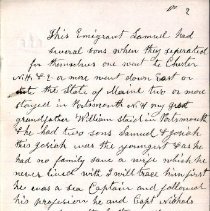 No 2
This Emigrant Samuel had
several sons when they seperated
for themselves one went to Chester
N.H. & 2 or more went down East or
the State of Maine two or more
stayed in Portsmouth N.H my great
grandfather William staid in Portsmouth
& he had two sons Samuel & Josiah
this Josiah was the youngest & as he
had no family save a wife which he
never lived with I will trace him first
he was a Sea Captain and followed
his profession he and Capt Nichols